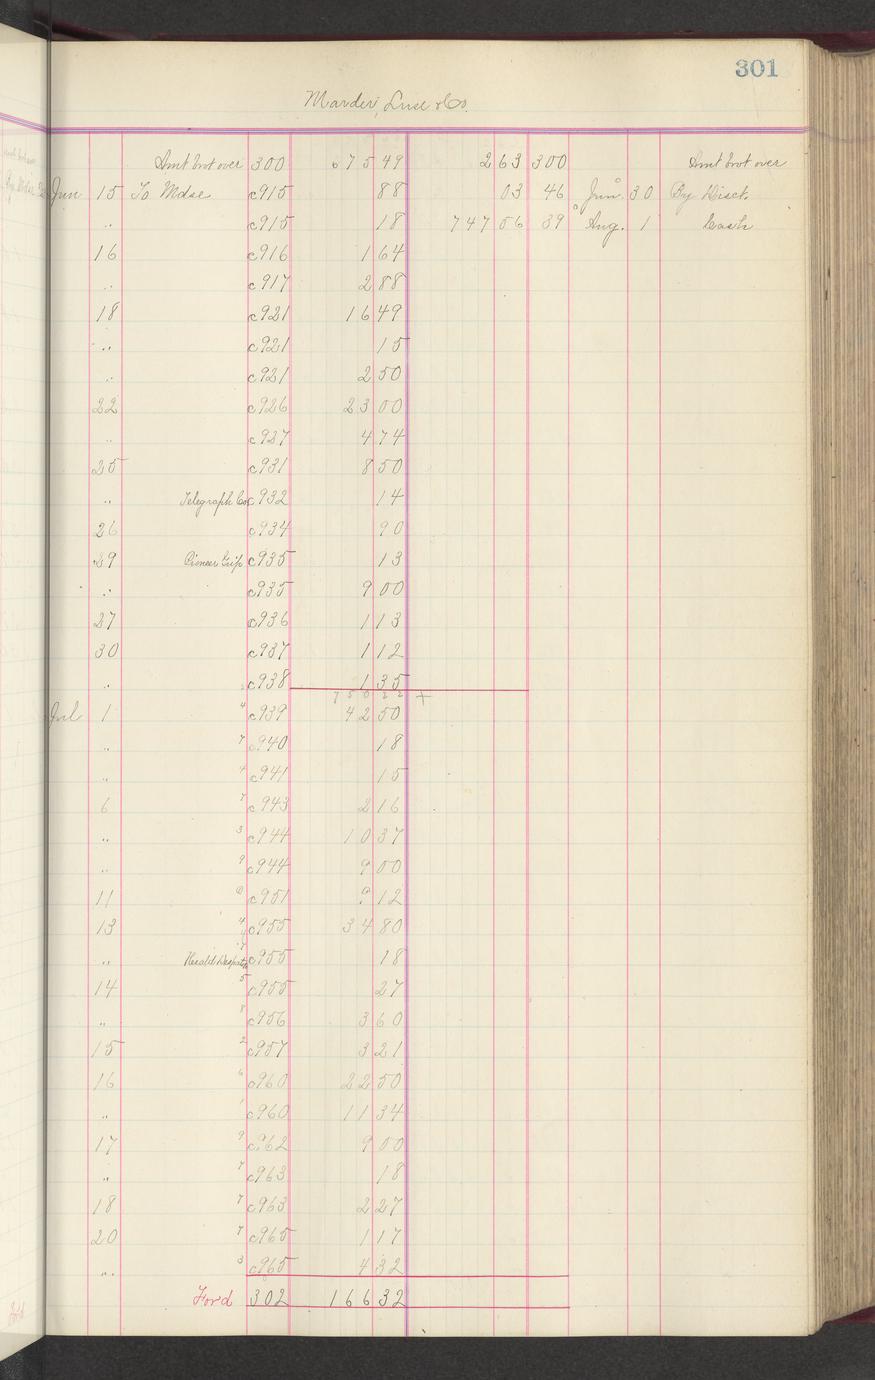 301
Marder, Luse & Co.
Amt brot over 300 675 49 2 63 300 Amt brot over
Jun 15 To Mdse c915 88 03 46 Jun. 30 By Disct.
" c915 18 747 06 39 Aug. 1 Cash
16 c916 1 64
" c917 2 88
18 c921 16 49
" c921 15
" c921 2 50
22 c926 23 00
" c927 4 74
25 c931 8 50
" Telegraph Co c932 14
26 c934 90
29 Pioneer Grip c935 13
" c935 9 00
27 c936 1 13
30 c937 1 12
" c938 1 35
750 22 +
Jul 1 4 c939 42 50
" 7 c940 18
" 4 c941 15
6 7 c943 2 16
" 3 c944 10 37
" 9 c944 9 00
11 c951 9 12
13 4 c955 34 80
" Herald Despatch 7 c955 18
14 5 c955 27
" 8 c956 3 60
15 2 c957 3 21
16 6 c960 22 50
" 1 c960 11 34
17 9 c962 9 00
" 7 c963 18
18 7 c963 2 27
20 7 c965 1 17
" 3 c965 4 32
For'd 302 166 32